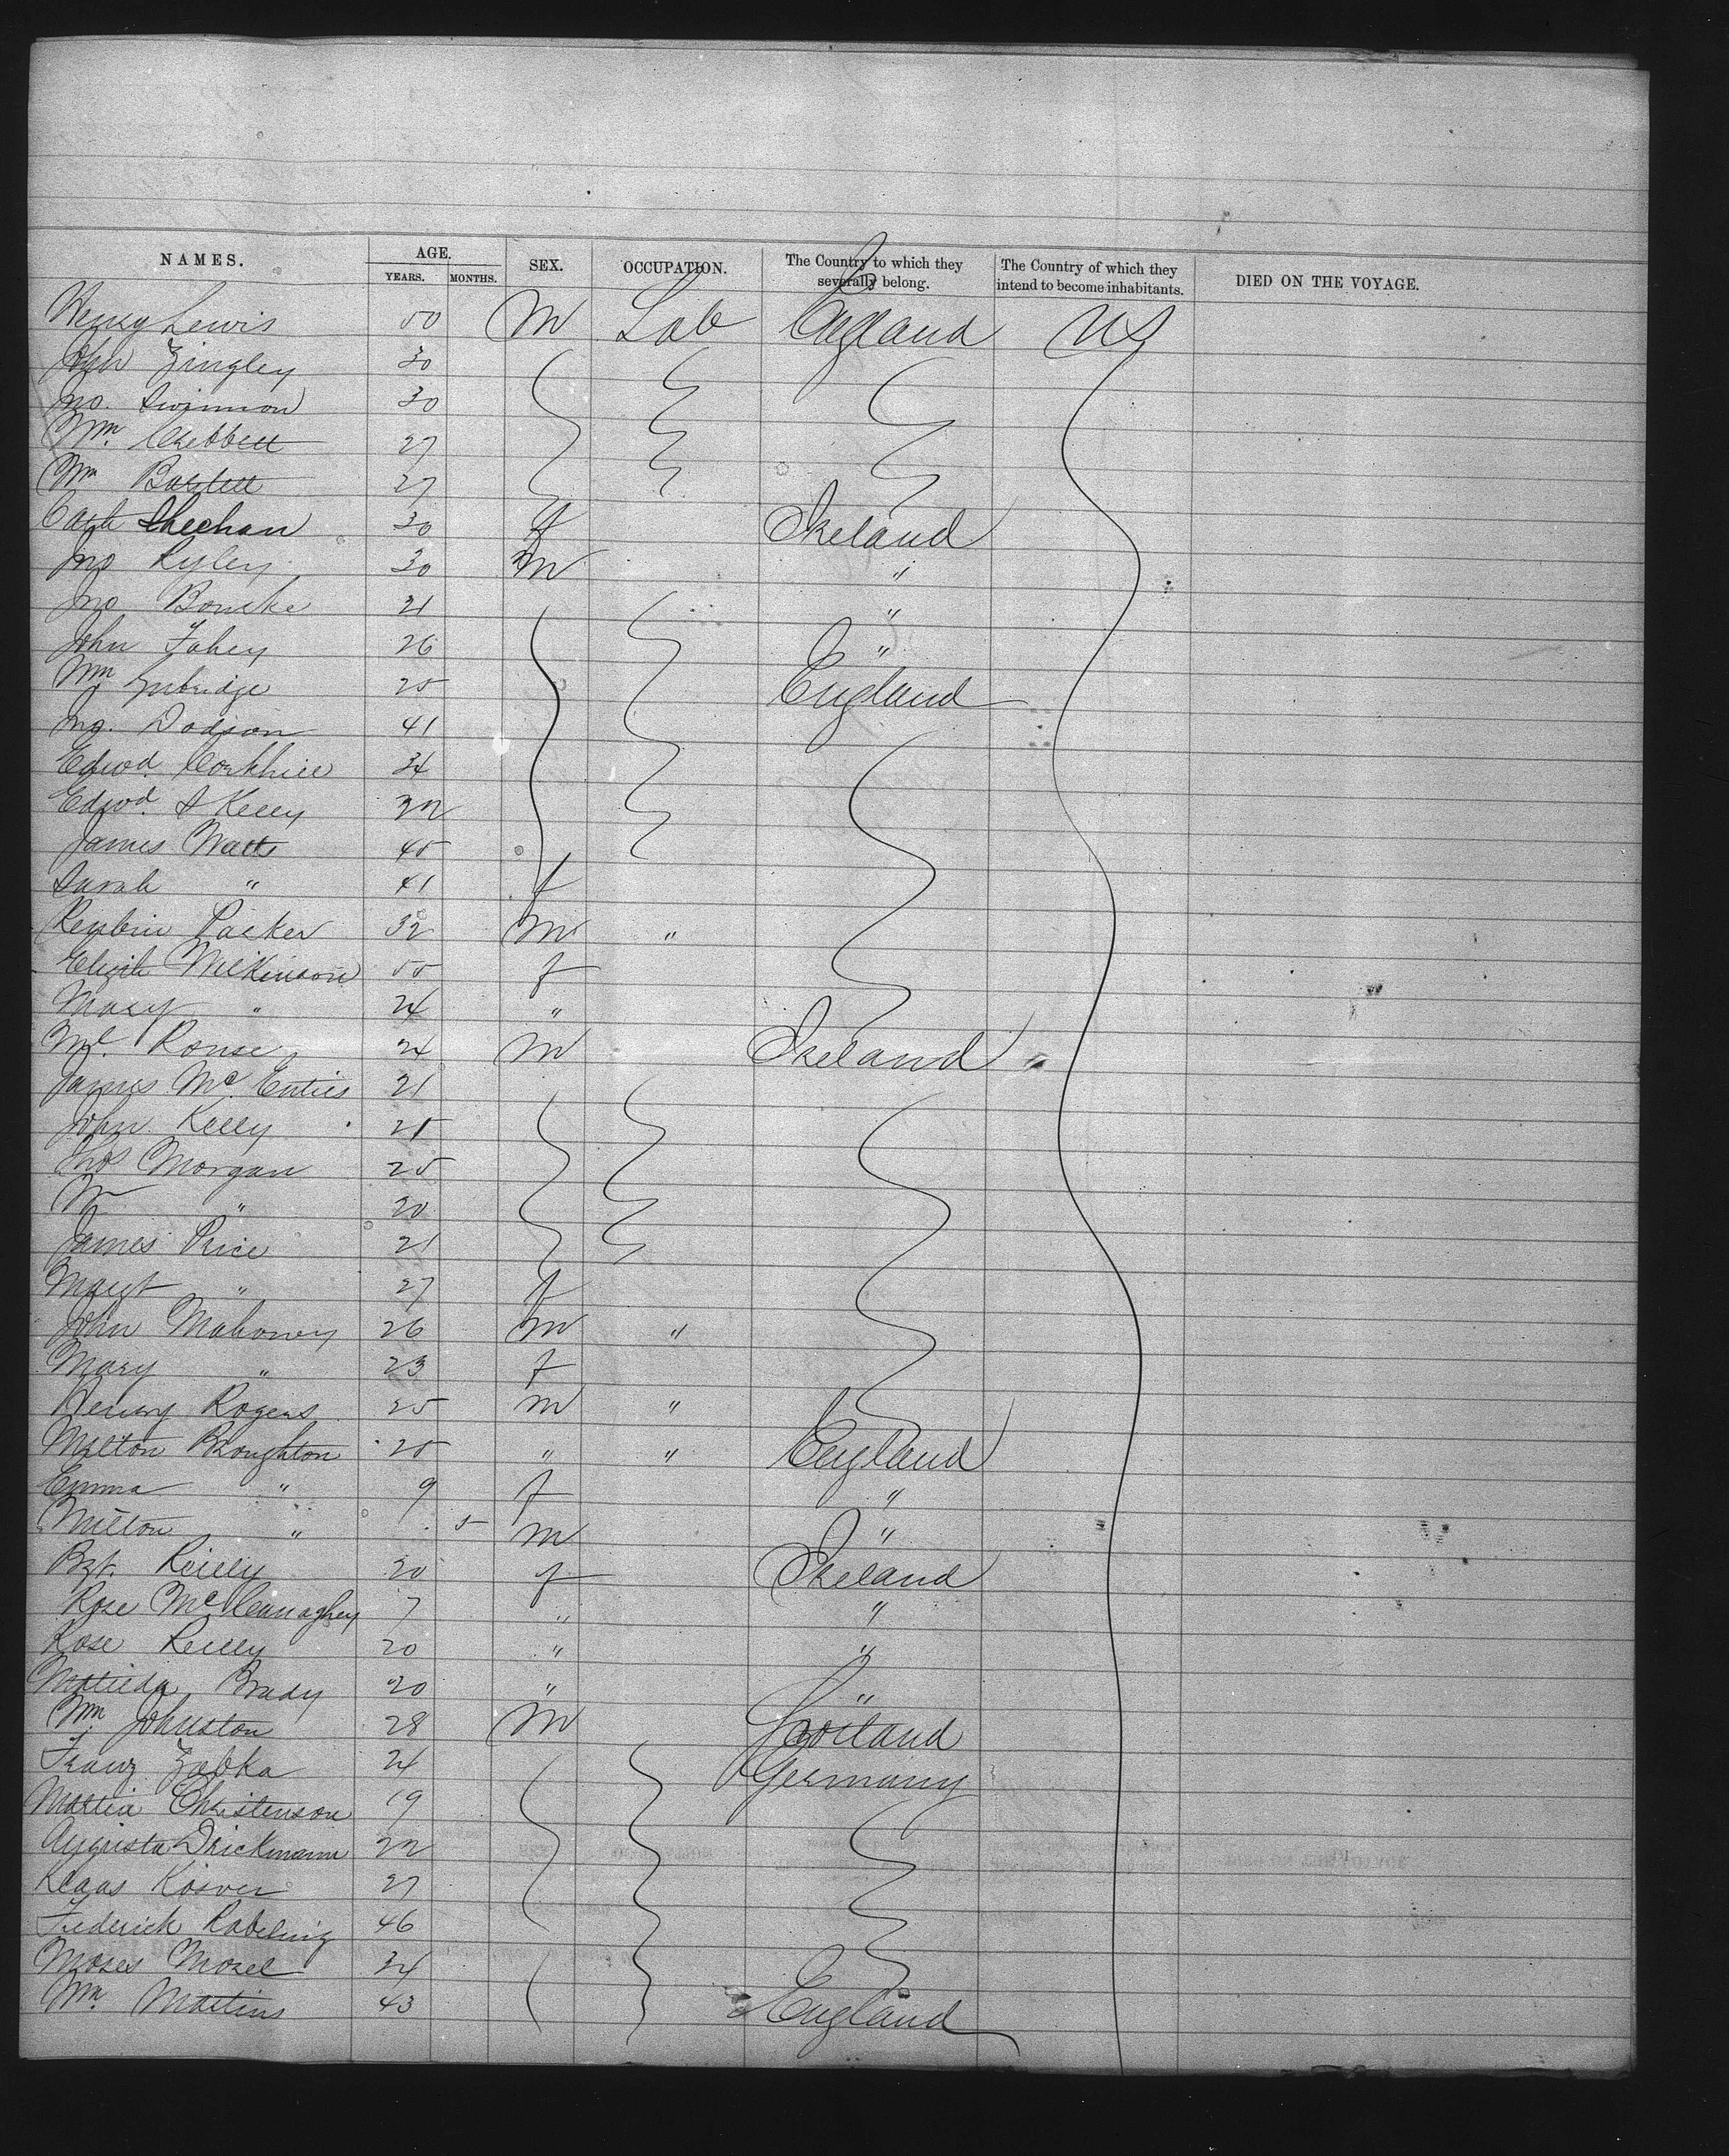 NAMES. AGE. YEARS. MONTHS. SEX. OCCUPATION. The Country to which they severally belong. The Country of which they intend to become inhabitants. DIED ON THE VOYAGE.
Henry Lewis 50 M Lab England US
John Zingley 30
Jno. Swinnon 30
Wm. 27
Wm Bartlett 27
Cath Sheehan 30 f Ireland
Jno Ryley 30 M "
Jno Bourke 21 "
John Fahey 26 "
Wm 25 England
Jno. Dodson 41
Edwd. Corkhill 34
Edwd. S Kelly 22
James Watts 45
Sarah " 41 f
Reubin Packer 32 M "
Elizth Wilkinson 55 f
Mary " 24 "
Ml. Rouse 24 M Ireland
James Mc Enties 21
John Kelly 25
Thos Morgan 25
Wm " 20
James Price 21
Margt " 27 f
John Mahoney 26 M "
Mary " 23 f
Henry Rogers 25 M "
Milton Broughton 25 " " England
Emma " 9 f "
Milton " 5 M "
Bgt. Reilly 20 f Ireland
Rose Mc 7 " "
Rose Reilly 20 " "
Matilda Brady 20 " "
Wm Johnston 28 M Scotland
Franz Zabka 24 Germany
Martin Christenson 19
Augusta Drickmann 22
Klaas Kosver 27
Frederick Rabeling 46
Moses Mosel 34
Wm. Martins 43 England